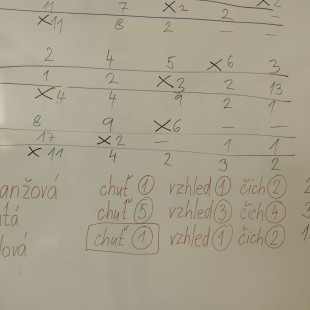 11 7 ×2 2 ×2
×11 8 2 – –
2 4 5 ×6 3
1 2 ×3 2 13
×4 4 9 2 1
8 9 ×6 – –
17 ×2 – 1 1
×11 4 2 3 2
anžová chuť 1 vzhled 1 čich 2 2
utá chuť 5 vzhled 3 čich 4 3
lová chuť 1 vzhled 1 čich 2 1